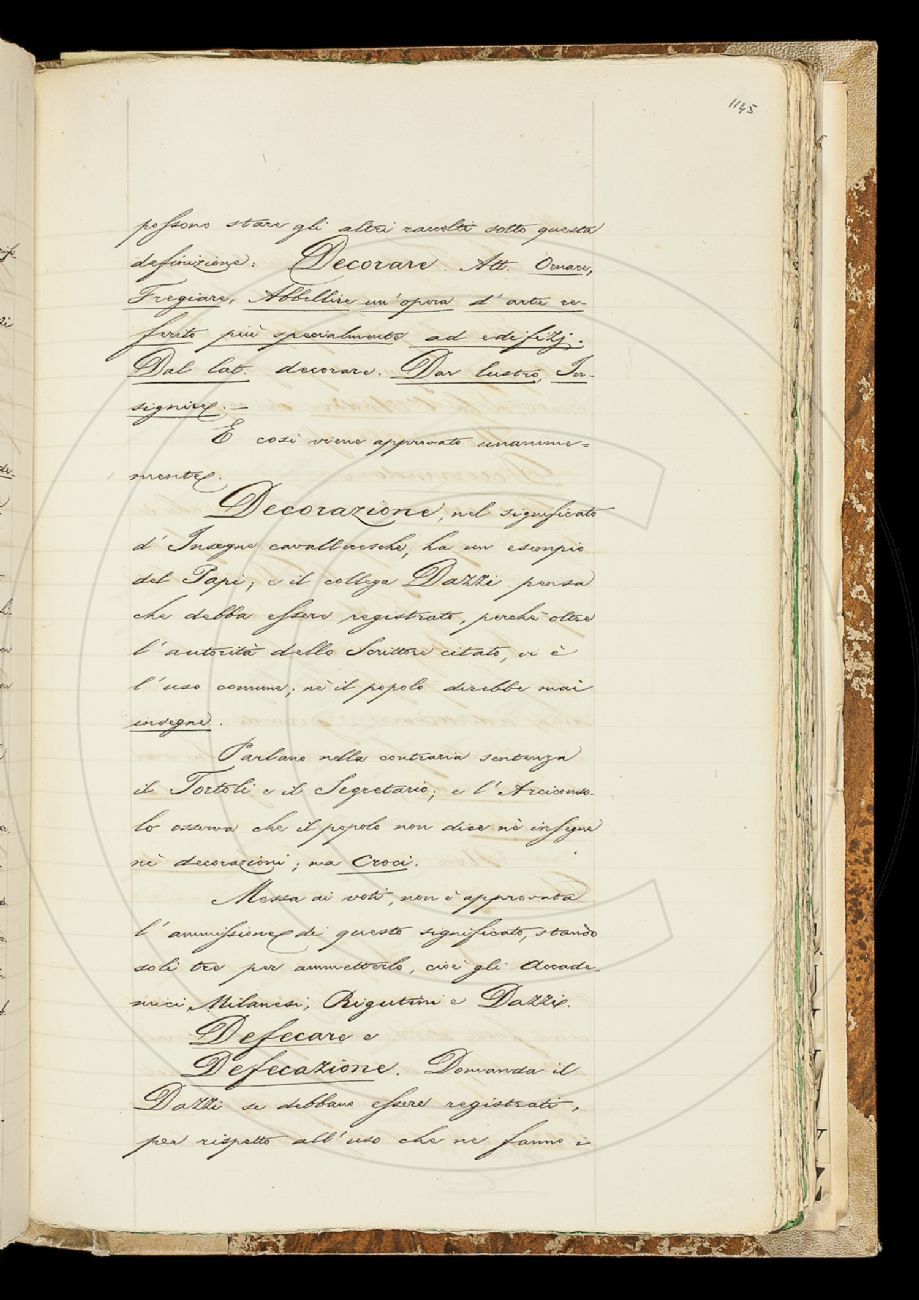 1145
possono stare gli altri raccolti sotto questa
definizione: Decorare. Att. Ornare,
Fregiare, Abbellire un'opera d'arte re-
ferito più specialmente ad edifizj.
Dal lat. decorare. Dar lustro, In-
signire. –
E così viene approvato unanime=
mente.
Decorazione, nel significato
d'Insegne cavalleresche, ha un esempio
del Papi; e il collega Dazzi pensa
che debba essere registrato, perchè oltre
l'autorità dello Scrittore citato, vi è
l'uso comune; nè il popolo direbbe mai
insegne.
Parlano nella contraria sentenza
il Tortoli e il Segretario; e l'Arciconso-
lo osserva che il popolo non dice nè insegne
nè decorazioni; ma croci.
Messa ai voti, non è approvata
l'ammissione di questo significato, stando
soli tre per ammetterlo, cioè gli Accade-
mici Milanesi, Rigutini e Dazzi.
Defecare e
Defecazione. Domanda il
Dazzi se debbano essere registrati,
per rispetto all'uso che ne fanno i